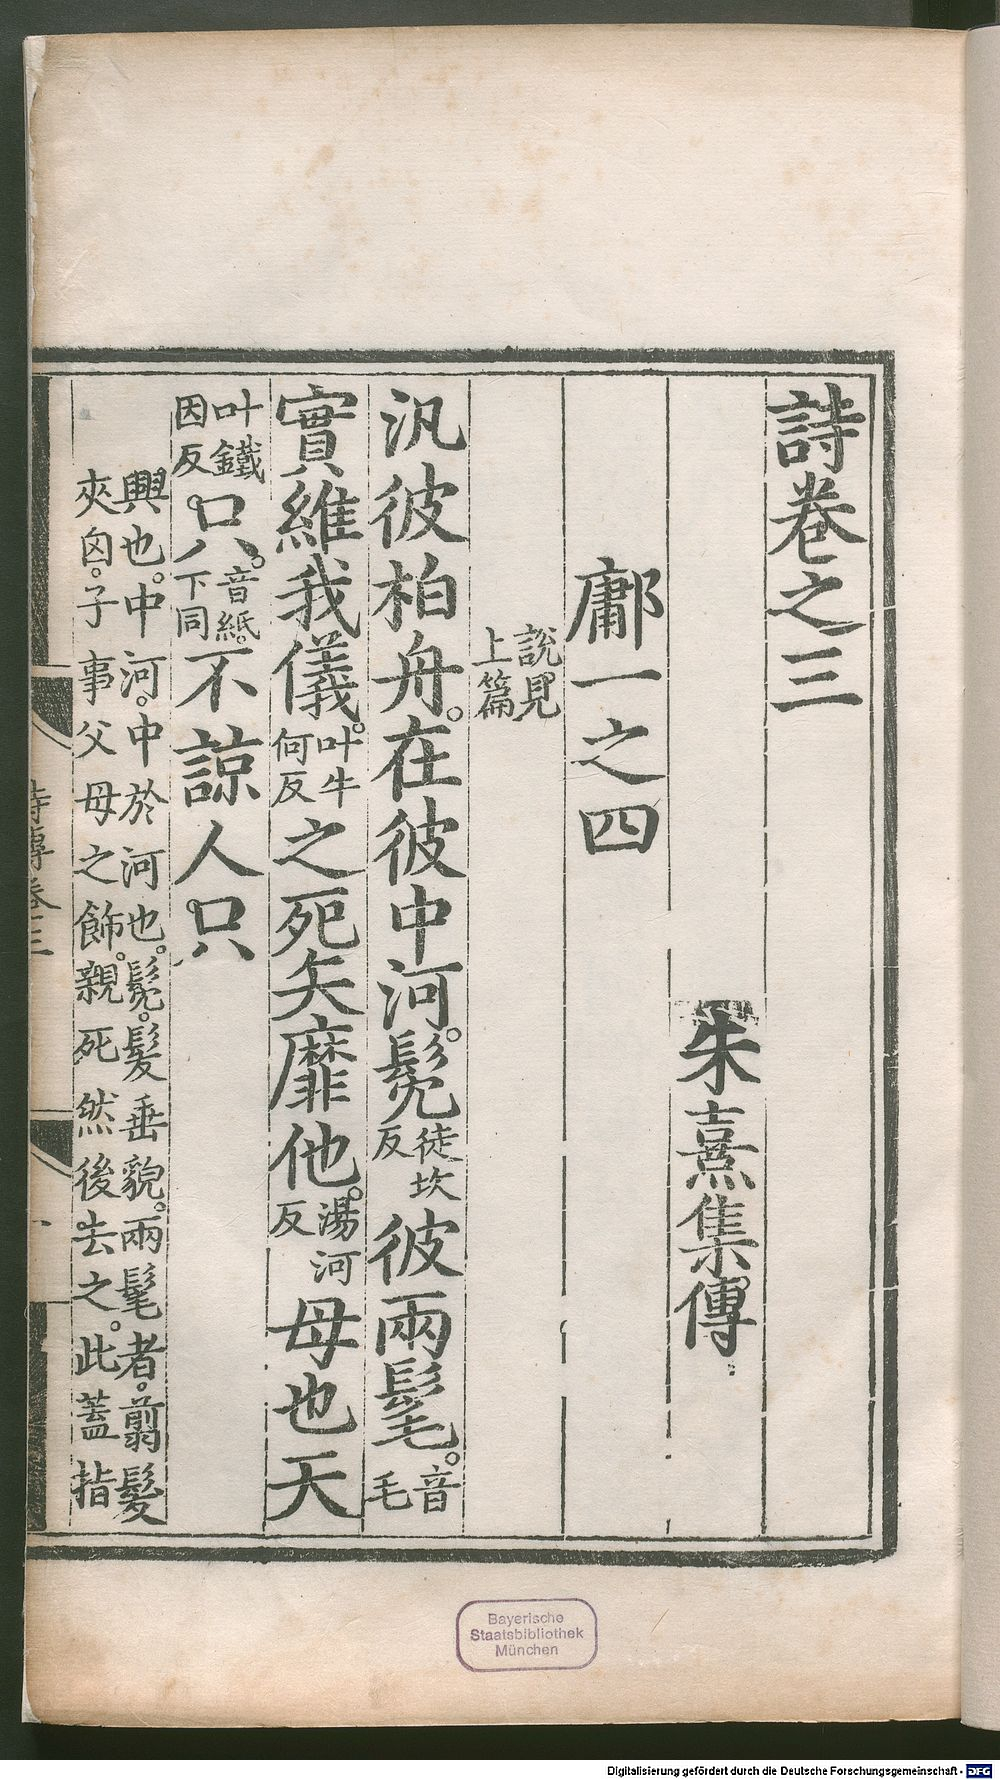 詩卷之三
朱熹集傳
鄘一之四
說見上篇
汎彼柏舟。在彼中河。髧徒坎反彼兩髦。音毛
實維我儀。叶牛何反之死矢靡他。湯河反母也天
叶鐵因反只。音紙。下同不諒人只
興也。中河。中於河也。髧。髮垂貌。兩髦者。翦髮
夾囟。子事父母之飾。親死然後去之。此蓋指
詩傳卷三
一
Bayerische
Staatsbibliothek
München
Digitalisierung gefördert durch die Deutsche Forschungsgemeinschaft - DFG